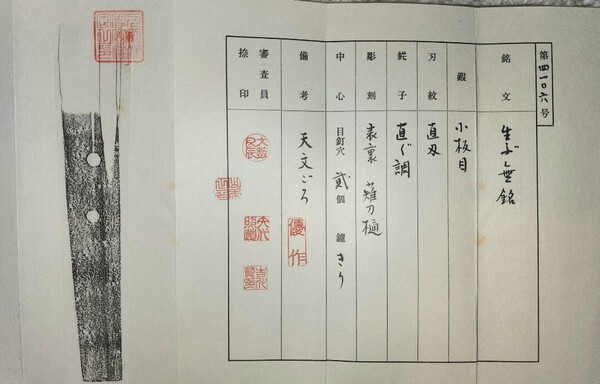 第四一〇六号
銘文 生ぶ無銘
鍜 小板目
刃紋 直刃
鋩子 直ぐ調
彫刻 表裏 薙刀樋
中心 目釘穴 貳個 鑢 きり
備考 天文ごろ 優作
審査員捺印